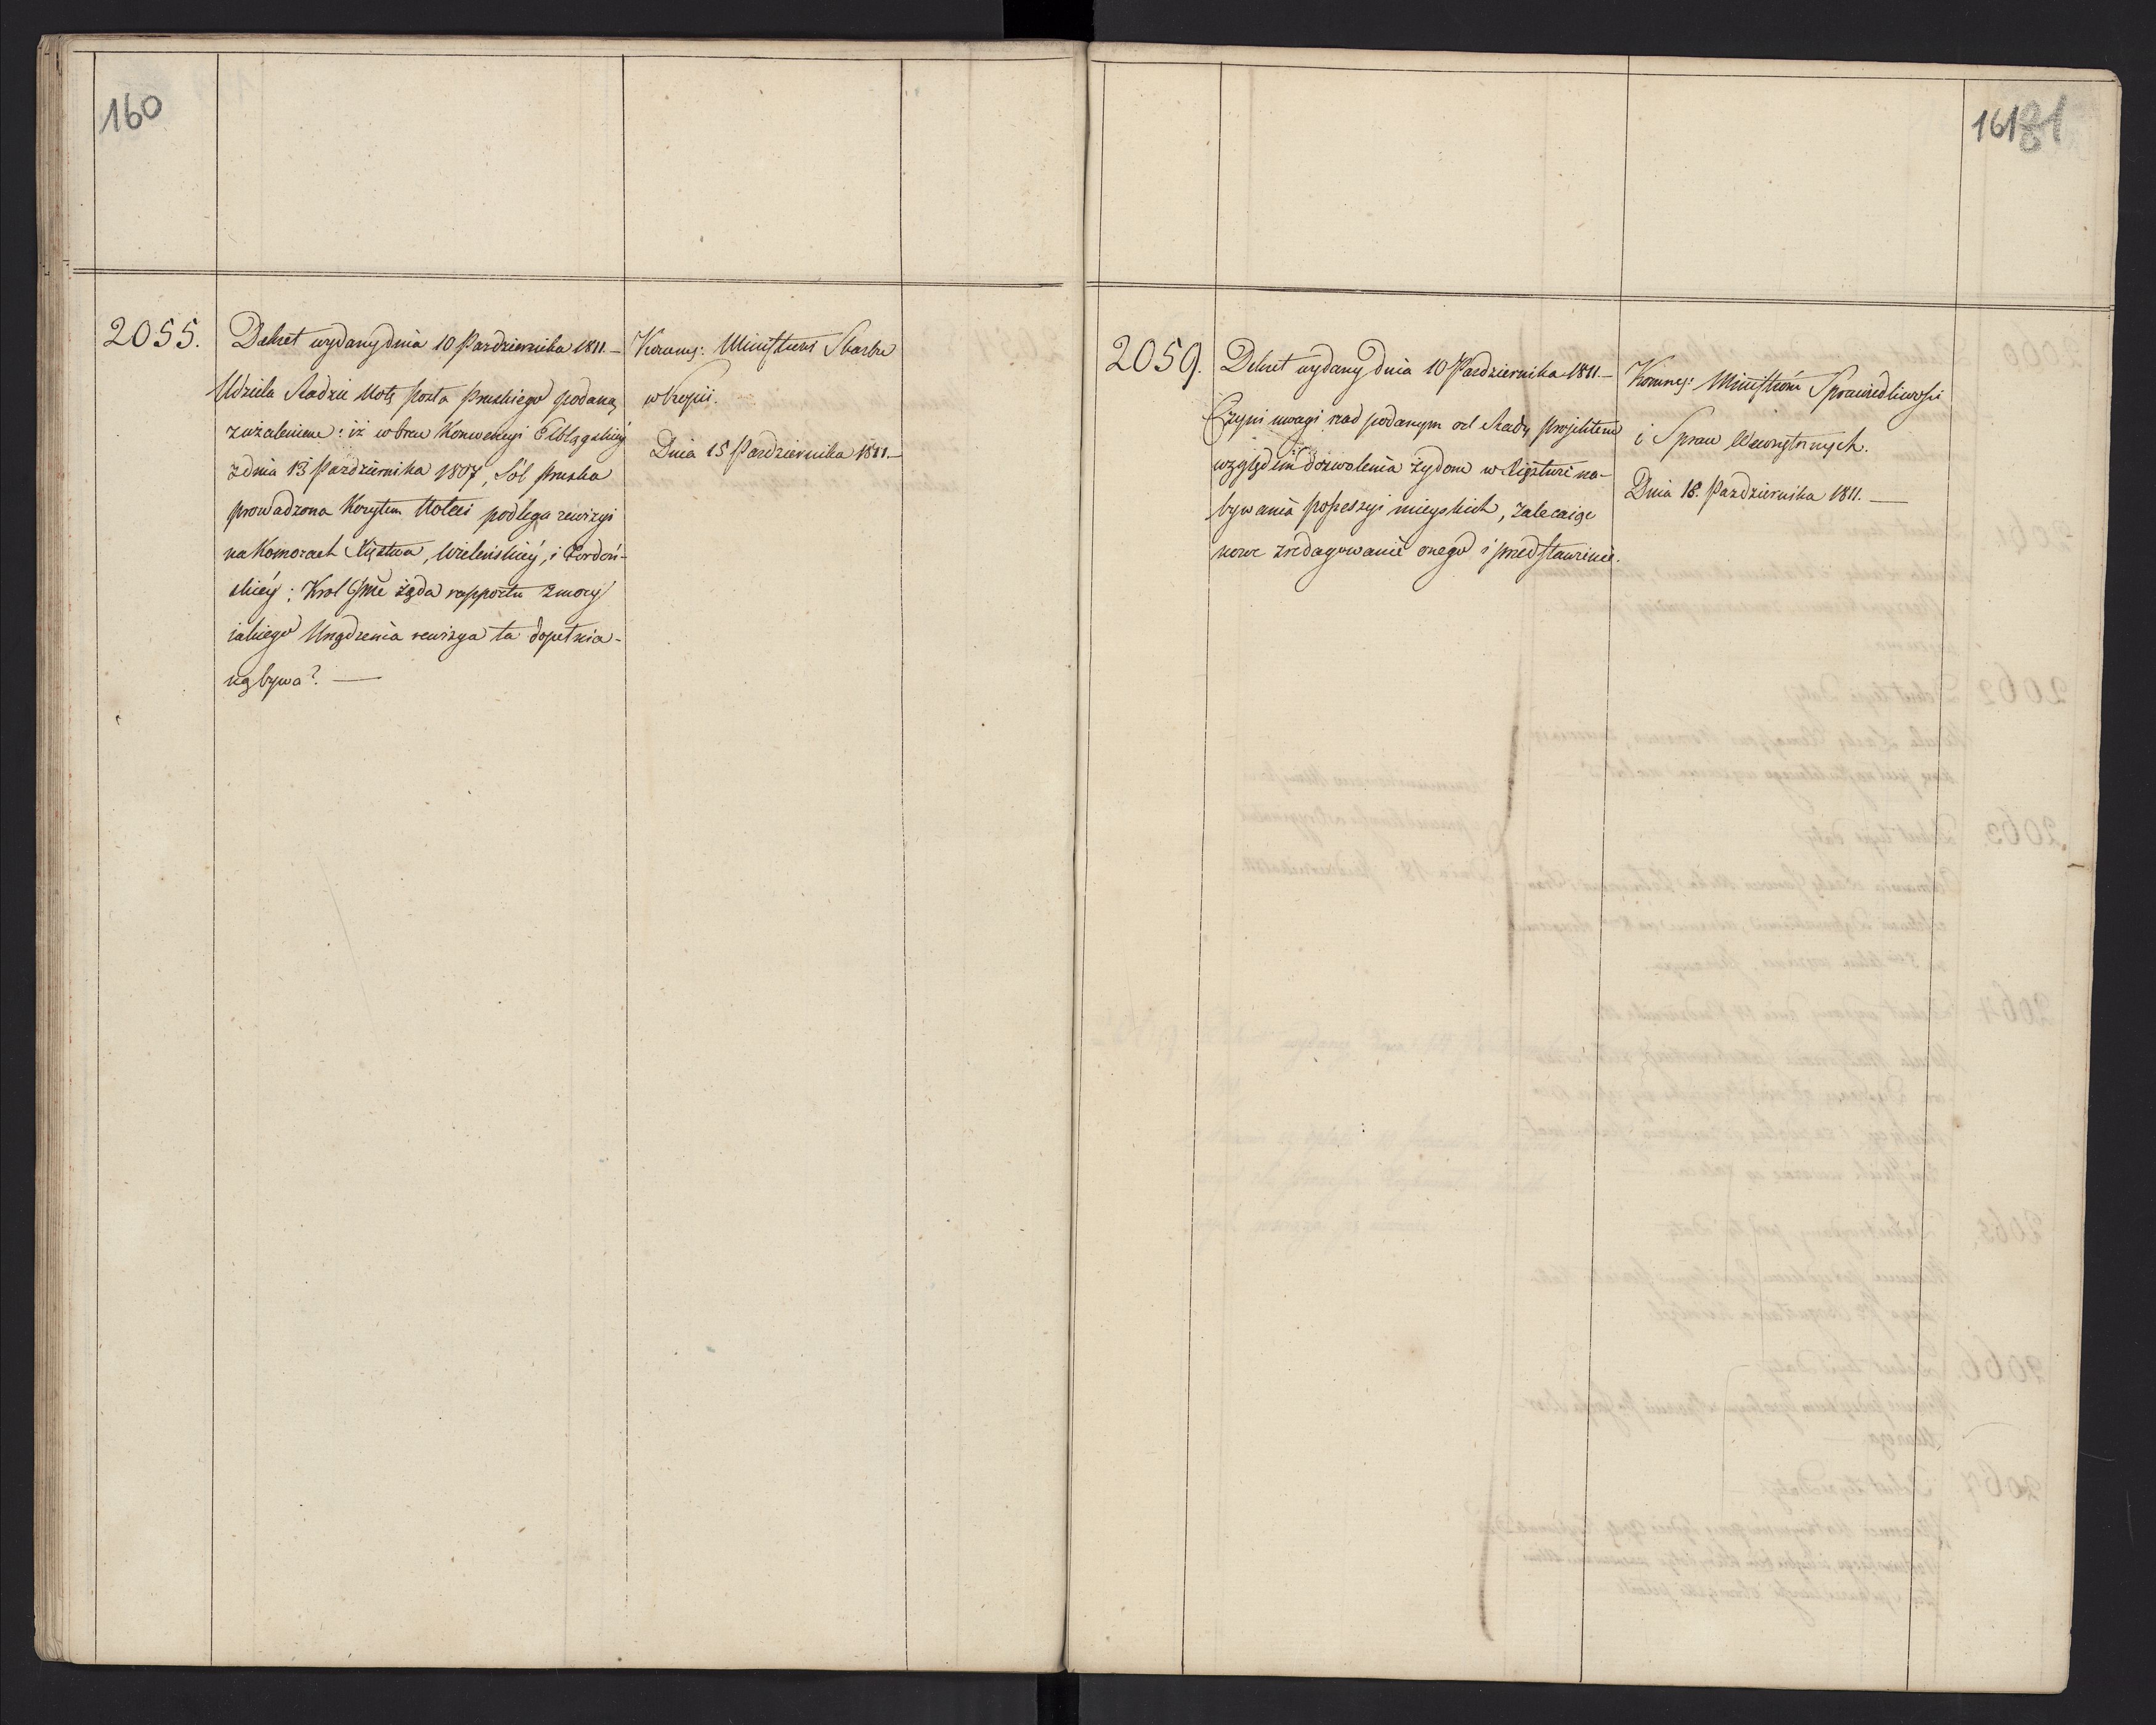 160
2055.
Dekret wydany dnia 10 Pazdziernika 1811.—
Udziela Radzie Notę Posła Pruskiego podaną
zużaleniem: iż wbrew Konwencyi Elblągskiéy
z dnia 13 Pazdziernika 1807, Sól Pruska
prowadzona Korytem Noteci podlega rewizyi
na Komorach Xięstwa, Wieleńskiéy, i Fordoń-
skiéy; Krol Jmć żąda rapportu z mocy
iakiego Urządzenia rewizya ta dopełnia-
ną bywa? —
Kommu: Ministrowi Skarbu
w kopii.
Dnia 15 Pazdziernika 1811.—
161 81
2059.
Dekret wydany dnia 10 Pazdziernika 1811.—
Czyni uwagi nad podanym od Rady Projektem
względem dozwolenia żydom w Xięstwie na-
bywania possessyi mieyskich, zalecaiąc
nowe zredagowanie onego i przedstawienie.
Kommu: Ministróm Sprawiedliwości
i Spraw Wewnętrznych.
Dnia 18. Pazdziernika 1811. —